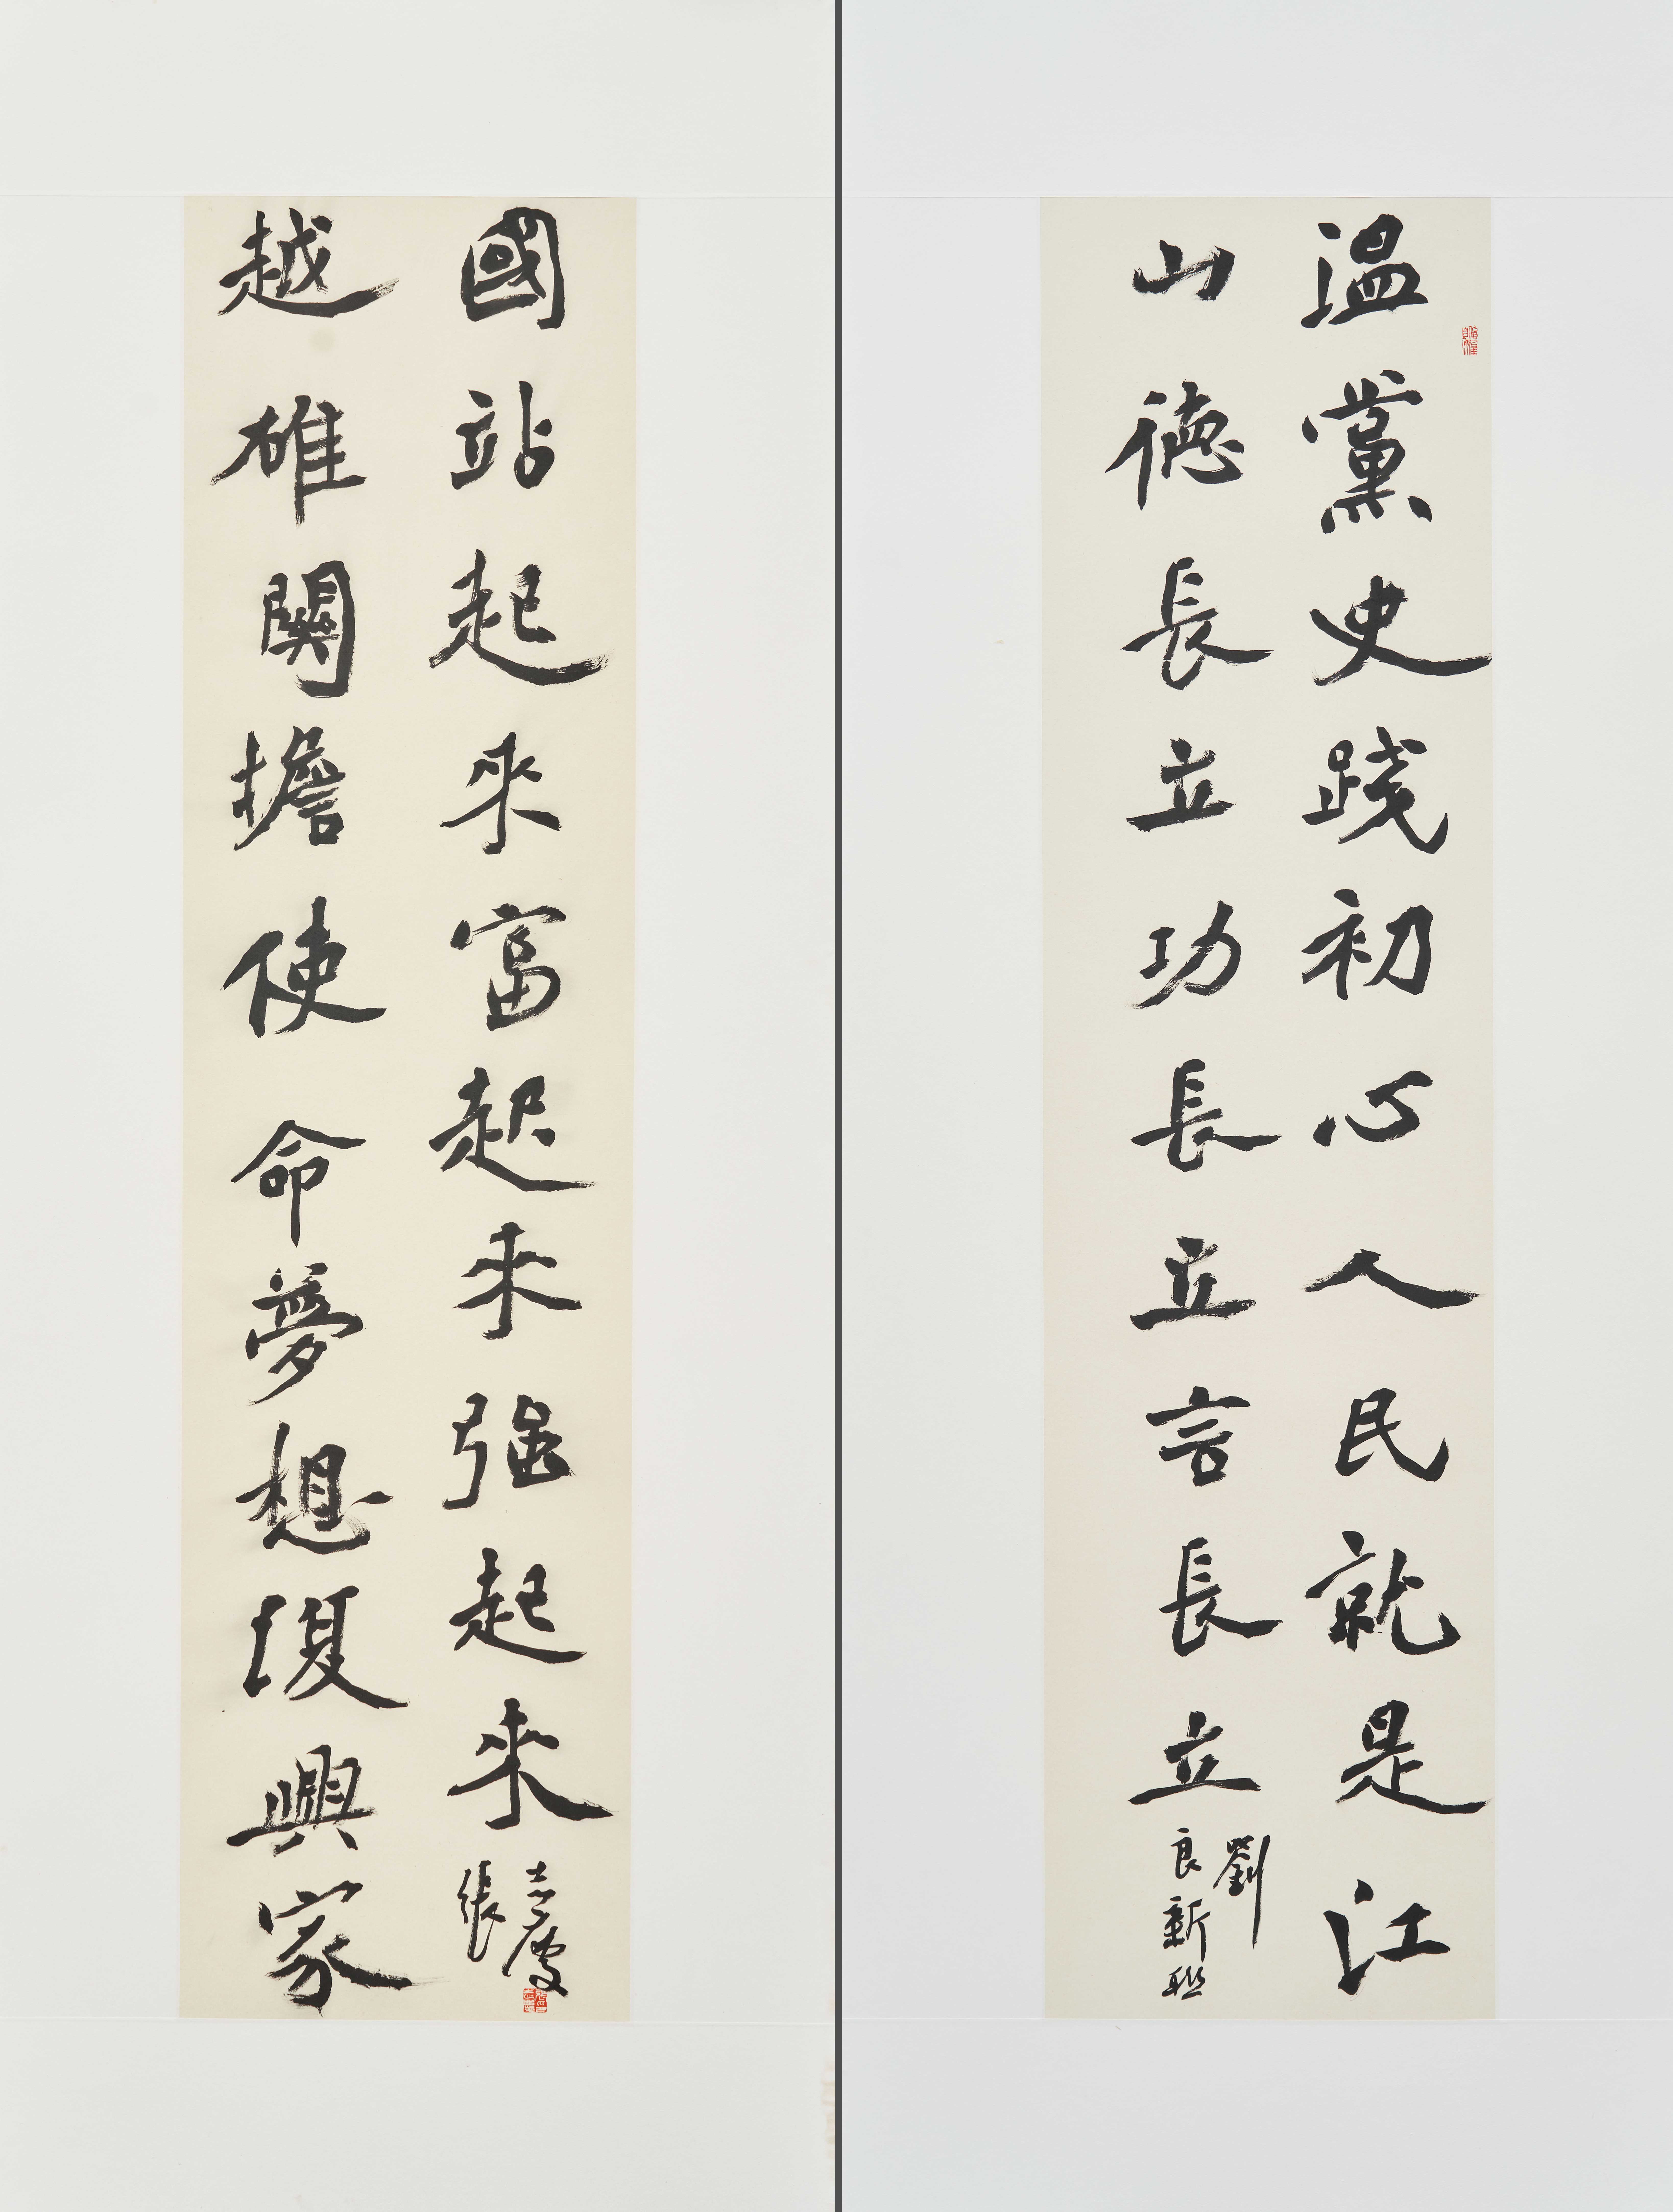 温黨史踐初心人民就是江
山德長立功長立言長立
劉
良新聯
越雄關擔使命夢想復興家
國站起來富起來强起來
張
志慶